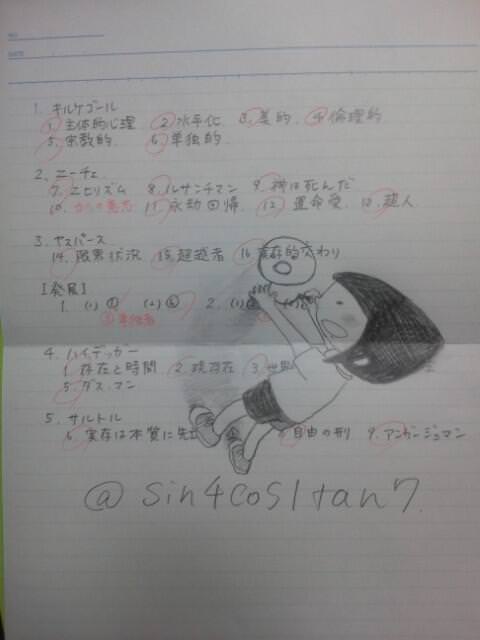 NO.
DATE
1. キルケゴール
① 主体的心理 ② 水平化 ③ 美的. ④ 倫理的
5. 宗教的. 6. 単独的.
2. ニーチェ
7. ニヒリズム 8. ルサンチマン 9. 神は死んだ
10. 力への意志 11. 永劫回帰. 12 運命愛. 13. 超人
3. ヤスパース
14. 限界状況 15. 超越者 16. 実存的交わり
【発展】
1. (1) ① (2) ④ 2. (1)
③ 単独者
4. ハイデッガー
1. 存在と時間 2. 現存在 3. 世
5. ダス・マン
5. サルトル
6. 実存は本質に先 自由の刑 9. アンガージュマン
@sin4cos1tan7.